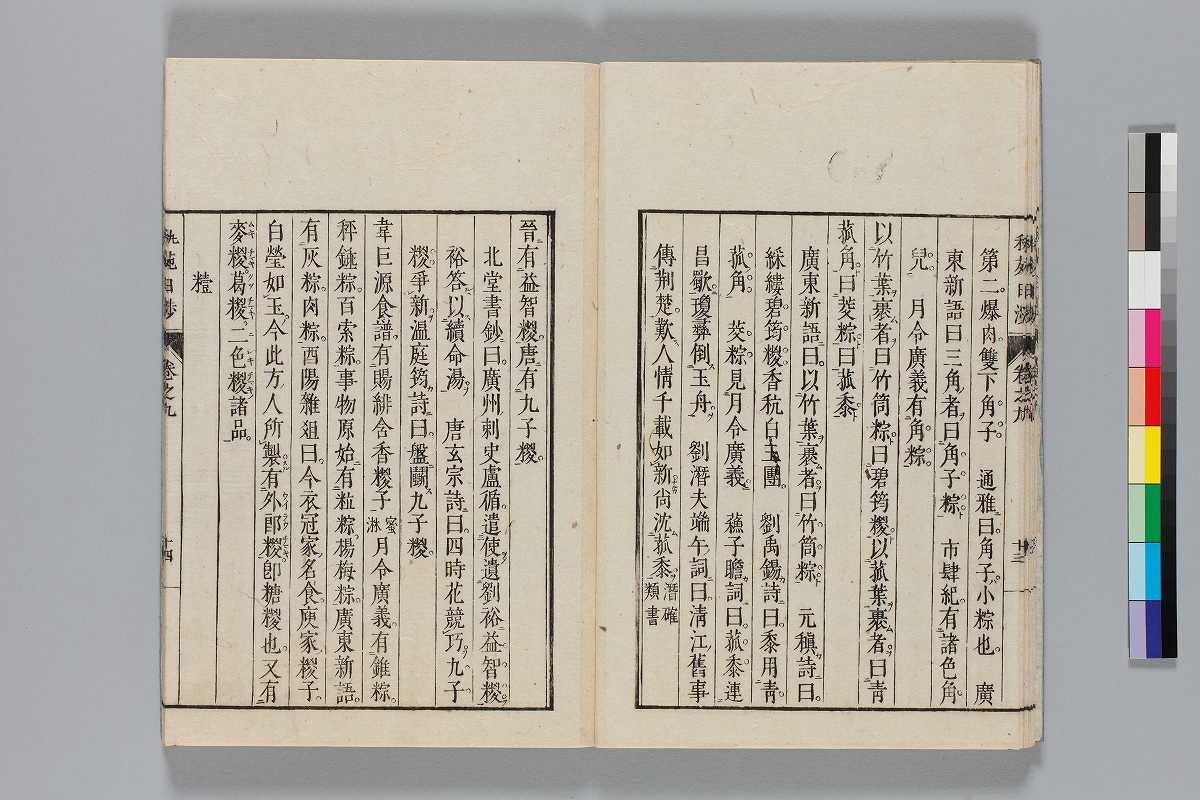 第二爆肉雙下角子　通雅曰角子小粽也　廣
東新語曰三角者曰角子粽　市肆紀有諸色角
兒　月令廣義有角粽
以竹葉裹者曰竹筒粽曰碧筠糉以菰葉裹者曰青
菰角曰菱粽曰菰黍
廣東新語曰以竹葉裹者曰竹筒粽　元稹詩曰
綵縷碧筠糉香秔白玉團　劉禹錫詩曰黍用青
菰角　茭粽見月令廣義　蘓子瞻詞曰菰黍連
昌歜瓊彝倒玉舟　劉潛夫端午詞曰清江舊事
傳荆楚歎人情千載如新尙沈菰黍潛確類書
晉有益智糉唐有九子糉
北堂書鈔曰廣州刺史盧循遣使遺劉裕益智糉
裕答以續命湯　唐玄宗詩曰四時花競巧九子
糉爭新溫庭筠詩曰盤鬭九子糉
韋巨源食譜有賜緋含香糉子蜜淋月令廣義有錐粽
秤鎚粽百索粽事物原始有粒粽楊梅粽廣東新語
有灰粽肉粽酉陽雜俎曰今衣冠家名食庾家糉子
白瑩如玉今此方人所製有外郎糉卽糖糉也又有
麥糉葛糉二色糉諸品
糦
卷之九
十四